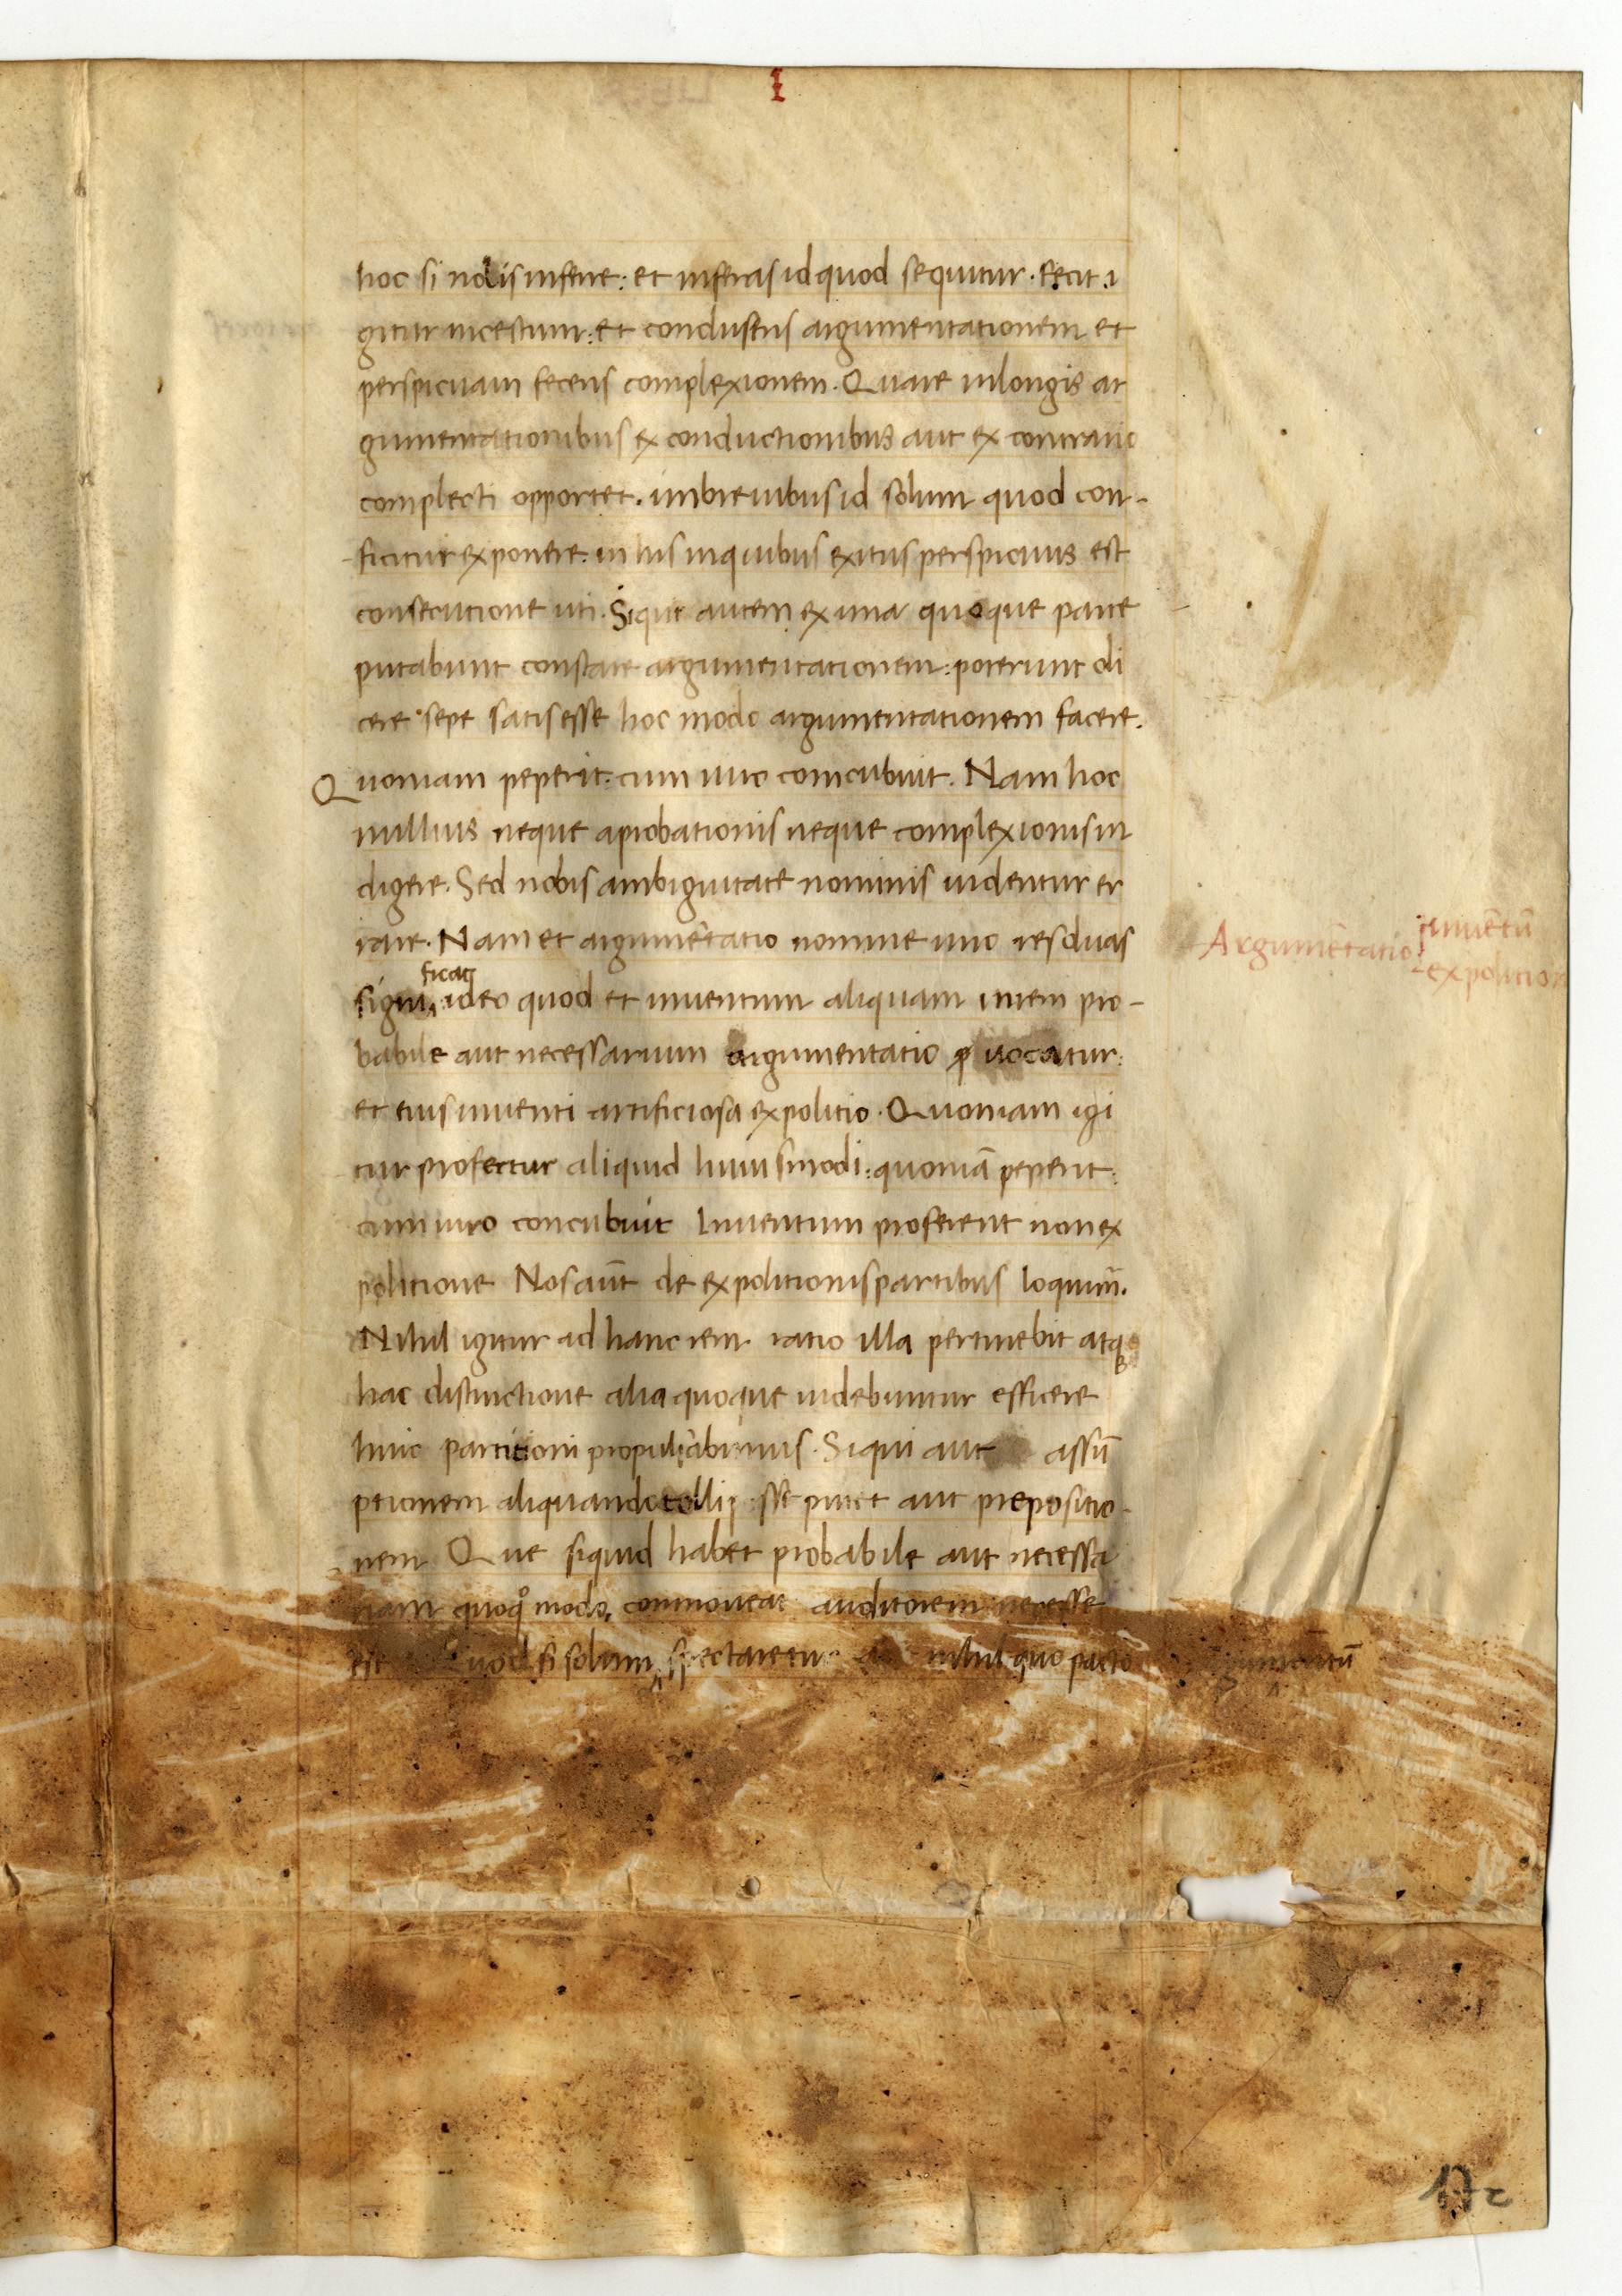 I
hoc si nolis inferre: et inferas id quod sequitur. fecit .i
gitur incestum: et conduseris argumentationem et
perspicuam feceris complexionem. Quare in longis ar
gumentationibus ex conductionibus aut ex contrario
complecti opportet. in breuibus id solum quod con-
ficitur exponere. in his in quibus exitus perspicuus est
consecutione uti. Si qui autem ex una quoque parte
putabunt constare argumentationem: poterunt di
cere sepe satis esse hoc modo argumentationem facere.
Quoniam peperit: cum uiro concubuit. Nam hoc
nullius neque aprobationis neque complexionis in
digere. Sed nobis ambiguitate nominis uidentur er
rare. Nam et argumētatio nomine uno res duas
significat ideo quod et inuentum aliquam in rem pro-
babile aut necessarium argumentatio uocatur:
et eius inuenti artificiosa expolitio. Quoniam igi
tur profertur aliquid huiusmodi: quoniā peperit:
cum uiro concubuit Inuentum proferent non ex
politione Nos aūt de expolitionis partibus loquim̄.
Nihil igitur ad hanc rem ratio illa pertinebit atq;
hac distinctione alia quoque uidebuntur efficere
huic partitioni Si qui aut assū
ptionem aliquando tolli posse putet aut prepositio-
nem Que siquid habet probabile aut necessa
rium quoq modo commoueat auditorem necesse
est Quod si solum spectaretur nihil quo pacto
Argumētatio inuētū
expolition
17 r